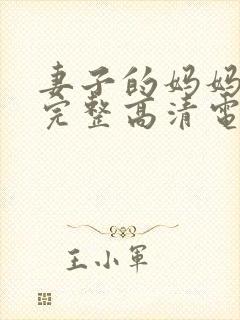 妻子的妈妈
完整高清电
王小军